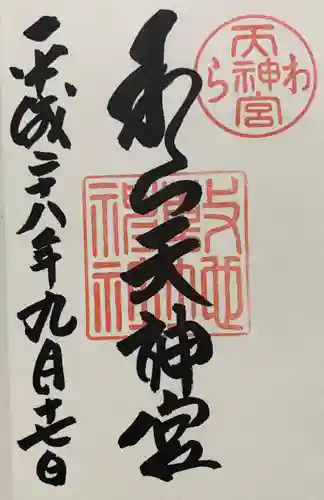 わら天神宮
わら天神宮
敷地
神社
平成二十八年九月十七日